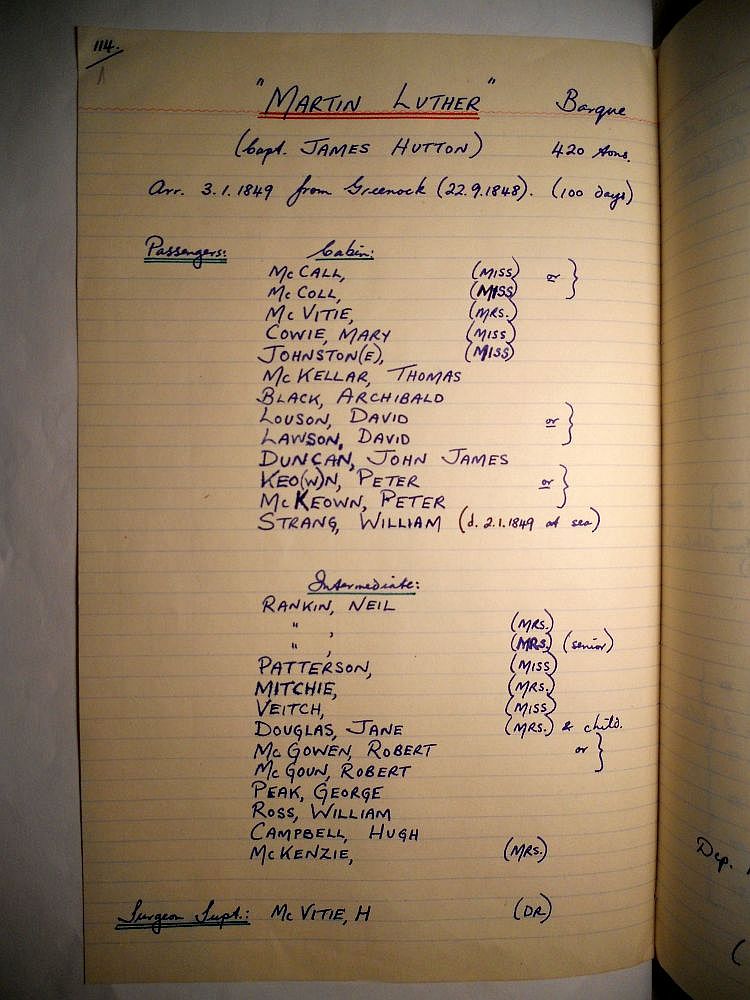 114.
"MARTIN LUTHER" Barque
(Capt. JAMES HUTTON) 420 tons.
Arr. 3.1.1849 from Greenock (22.9.1848). (100 days)
Passengers: Cabin:
McCALL, (MISS) or }
McCOLL, (MISS)
McVITIE, (MRS.)
COWIE, MARY (MISS)
JOHNSTON(E), (MISS)
McKELLAR, THOMAS
BLACK, ARCHIBALD
LOUSON, DAVID or }
LAWSON, DAVID
DUNCAN, JOHN JAMES
KEO(W)N, PETER or }
McKEOWN, PETER
STRANG, WILLIAM (d. 2.1.1849 at sea)
Intermediate:
RANKIN, NEIL
" , (MRS.)
" , (MRS.) (senior)
PATTERSON, (MISS)
MITCHIE, (MRS.)
VEITCH, (MISS)
DOUGLAS, JANE (MRS.) & child.
McGOWEN, ROBERT or }
McGOUN, ROBERT
PEAK, GEORGE
ROSS, WILLIAM
CAMPBELL, HUGH
McKENZIE, (MRS.)
Surgeon Supt.: McVITIE, H (DR)
Dep.